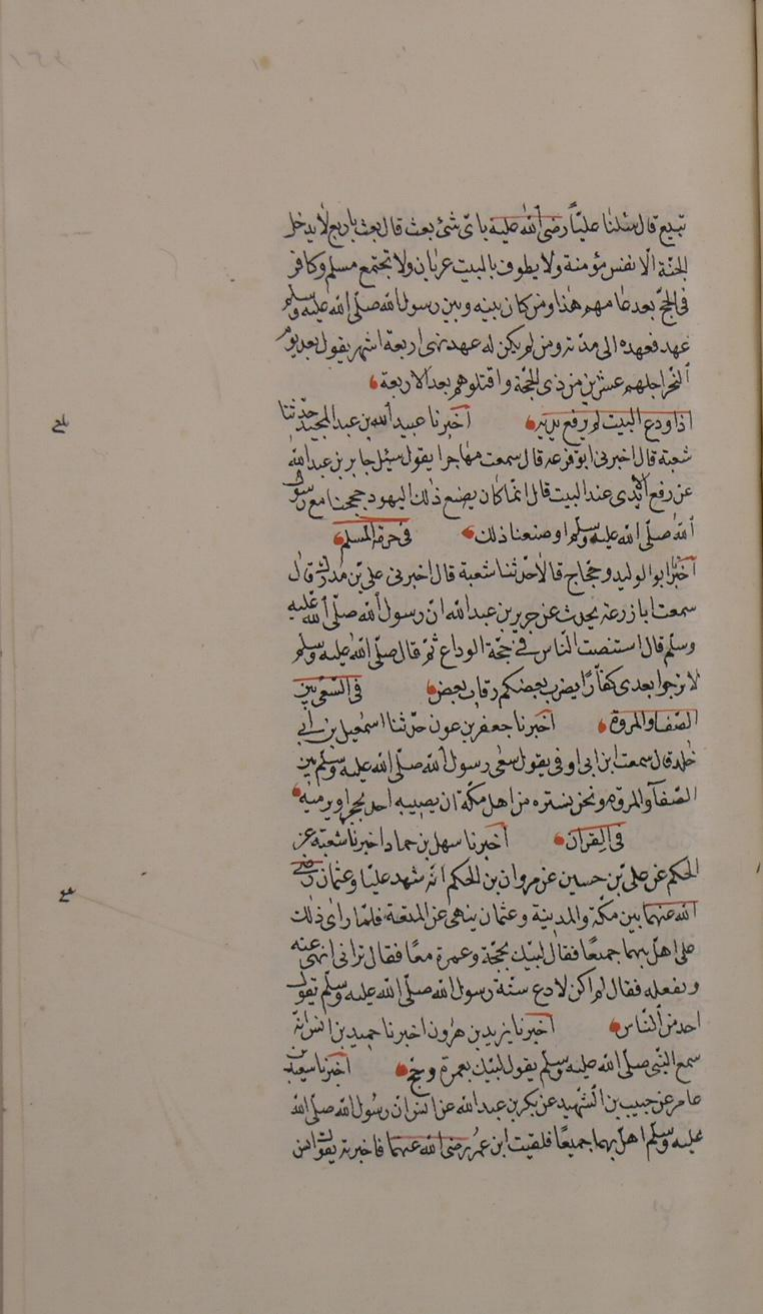 تبيع قال سئلنا عليّا رضى الله عليه باىّ شئ بعث قال بعث باربع لا يدخل
الجنّة الّا نفس مؤمنة ولا يطوف بالبيت عريان ولا تجتمع مسلم وكافر
فى الحجّ بعد عامهم هذا ومن كان بينه وبين رسول الله صلّى الله عليه وسلم
عهد فعهده الى مدّته ومن لم يكن له عهد فهى اربعة اشهر يقول بعد يوم
النحر اجلهم عشرين من ذى الحجّة واقتلوهم بعد الاربعة
اذا ودع البيت لم يرفع يديه اخبرنا عبيد الله بن عبد المجيد حدّثنا
شعبة قال اخبرنى ابو قزعه قال سمعت مهاجرا يقول سئل جابر بن عبد الله
عن رفع الايدى عند البيت قال انّما كان يصنع ذلك اليهود حججنا مع رسول
الله صلّى الله عليه وسلم او صنعنا ذلك فى حرمة المسلم
اخبرنا ابو الوليد وحجاج قالا حدّثنا شعبة قال اخبرنى على بن مدرك قال
سمعت ابا زرعة يحدث عن جرير بن عبد الله انّ رسول الله صلّى الله عليه
وسلم قال استنصت النّاس فى حجّة الوداع ثمّ قال صلّى الله عليه وسلم
لا ترجوا بعدى كفّارًا يضرب بعضكم رقاب بعض فى السّعى بين
الصّفا والمروة اخبرنا جعفر بن عون حدّثنا اسمعيل بن ابى
خلد قال سمعت ابن ابى اوفى يقول سعى رسول الله صلّى الله عليه وسلم بين
الصّفا والمروه ونحن نستره من اهل مكّة ان يصيبه احد بحجر او يرميه
فى القران اخبرنا سهل بن حماد اخبرنا شعبة عن
الحكم عن على بن حسين عن مروان بن الحكم انّه شهد عليّا وعثمان رضى
الله عنهما بين مكّة والمدينة وعثمان ينهى عن المتعة فلمّا راى ذلك
على اهلّ بهما جميعًا فقال لبيّك بحجّة وعمرة معًا فقال ترانى انهى عنه
وتفعله فقال لم اكن لادع سنّة رسول الله صلّى الله عليه وسلم بقول
احد من النّاس اخبرنا يزيد بن هرون اخبرنا حميد بن انس انّه
سمع النّبى صلّى الله عليه وسلم يقول لبيّك بعمرة وحجّ اخبرنا سعيد بن
عامر عن حبيب بن الشّهيد عن بكر بن عبد الله عن انس انّ رسول الله صلّى الله
عليه وسلم اهلّ بهما جميعًا فلقيت ابن عمر رضى الله عنهما فاخبرته بقول انس